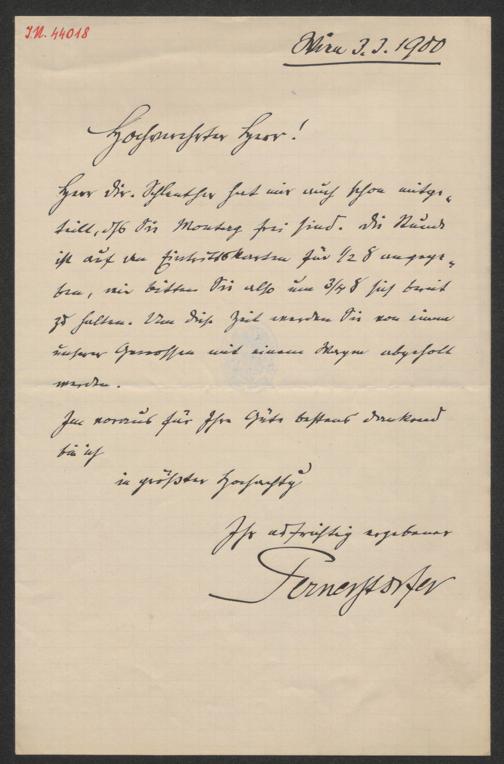 I.N. 44018
Wien 3.3.1900
Hochverehrter Herr!
Herr Dir. Schlenther hat mir auch schon mitge-
teilt, dß Sie Montag frei sind. Die Stunde
ist auf den Eintrittskarten für ½ 8 angege-
ben, wir bitten Sie also um ¾ 8 sich bereit
zu halten. Um diese Zeit werden Sie von einem
unserer Genossen mit einem Wagen abgeholt
werden.
Im voraus für Ihre Güte bestens dankend
bin ich
in größter Hochachtg
Ihr aufrichtig ergebener
Pernerstorfer